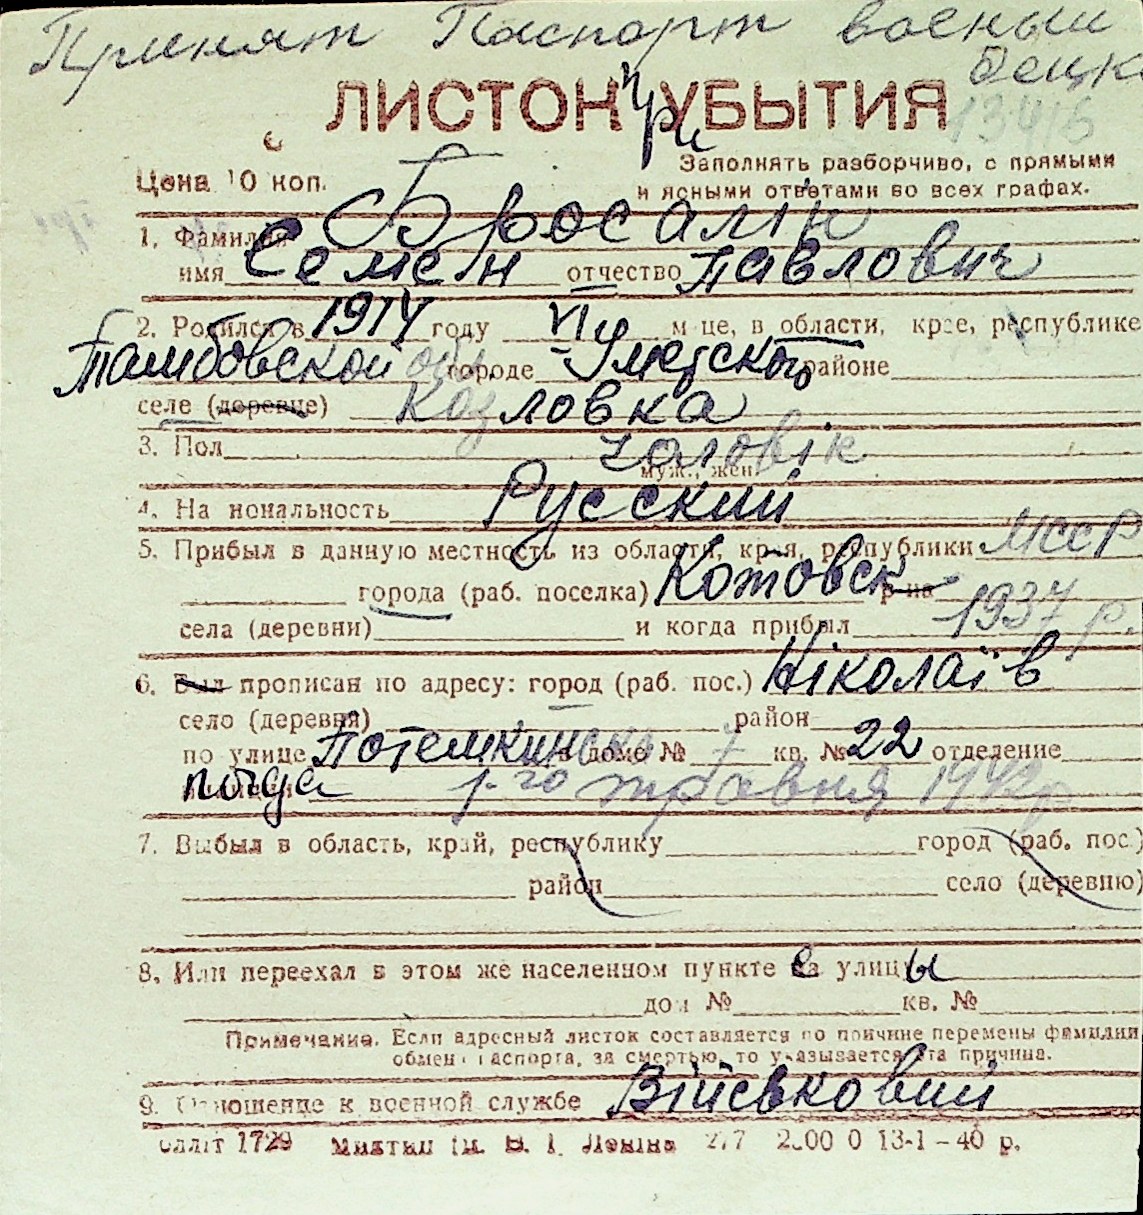 Принят Паспорт военый
ЛИСТОК УБЫТИЯ
при
13416
Цена 10 коп.
Заполнять разборчиво, с прямыми
и ясными ответами во всех графах.
1. Фамилия Бросалин
имя Семен отчество Павлович
2. Родился в 1914 году VIго м-це, в области, крае, республике
Тамбовской обл. городе Уметского районе
селе (деревце) Козловка
3. Пол чоловік
муж., жен.
4. Национальность Русский
5. Прибыл в данную местность из области, края, республики МССР
города (раб. поселка) Котовск р-на
села (деревни) и когда прибыл 1937 р.
6. Был прописан по адресу: город (раб. пос.) Ніколаїв
село (деревня) район
по улице Потемкинска в доме № 7 кв. № 22 отделение
1-го травня 1942р
7. Выбыл в область, край, республику город (раб. пос.)
район село (деревню)
8. Или переехал в этом же населенном пункте с улицы
дом № кв. №
Примечание. Если адресный листок составляется по причине перемены фамилии
обмена паспорта, за смертью, то указывается эта причина.
9. Отношение к военной службе Військовий
1729 им. В. І. Леніна 277 13-1-40 р.